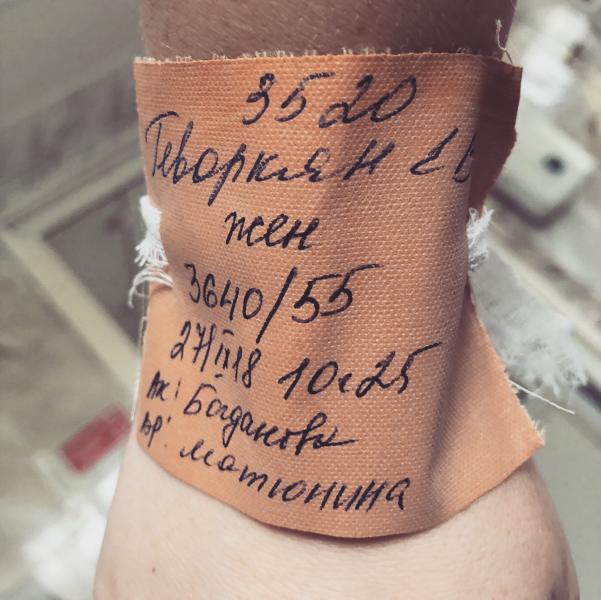 3520
Геворкян Е В
жен
3640/55
27/II 18 10 25
Ак: Богданова
Вр: Матюнина